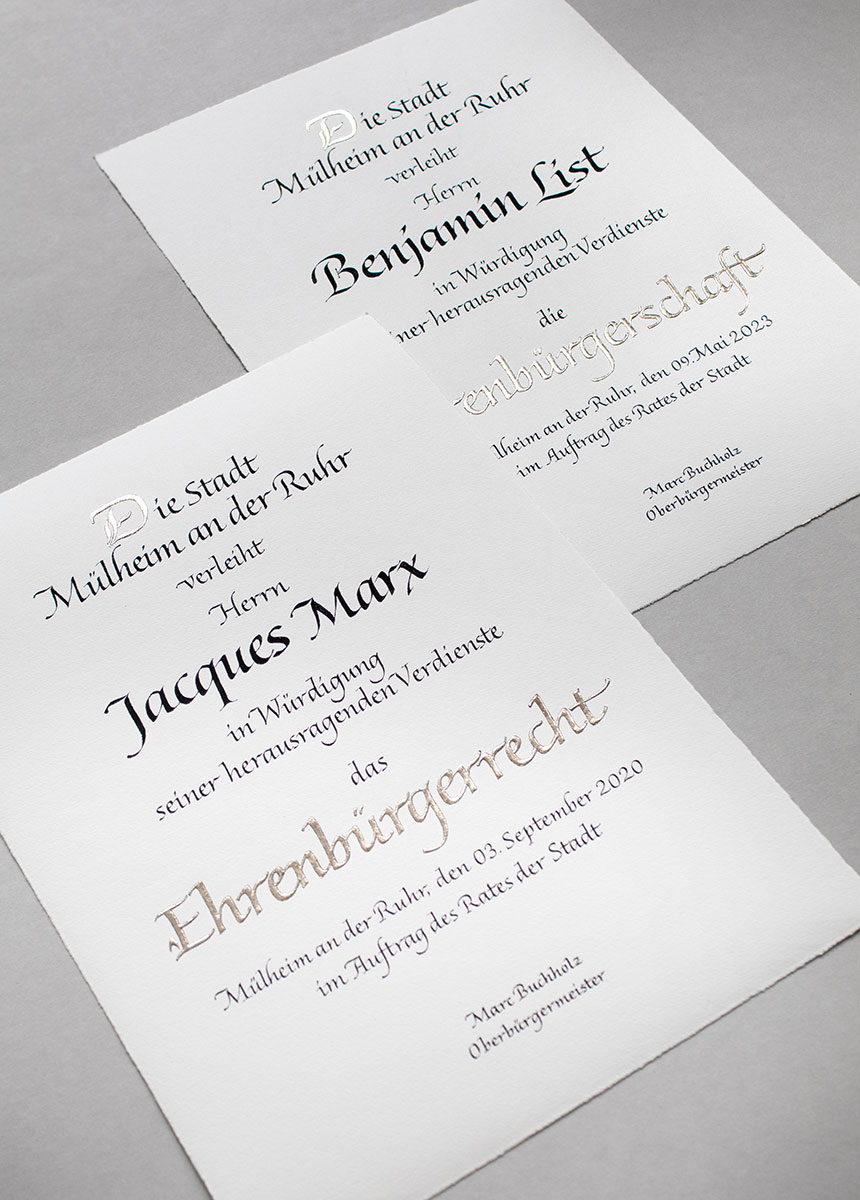 Die Stadt
Mülheim an der Ruhr
verleiht
Herrn
Benjamin List
in Würdigung
iner herausragenden Verdienste
die
enbürgerschaft
lheim an der Ruhr, den 09. Mai 2023
im Auftrag des Rates der Stadt
Marc Buchholz
Oberbürgermeister
Die Stadt
Mülheim an der Ruhr
verleiht
Herrn
Jacques Marx
in Würdigung
seiner herausragenden Verdienste
das
Ehrenbürgerrecht
Mülheim an der Ruhr, den 03. September 2020
im Auftrag des Rates der Stadt
Marc Buchholz
Oberbürgermeister